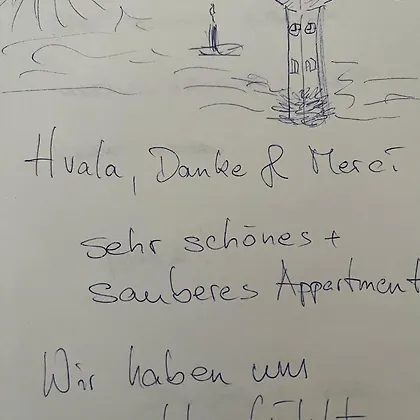 Hvala, Danke & Merci
sehr schönes +
sauberes Appartment
Wir haben uns